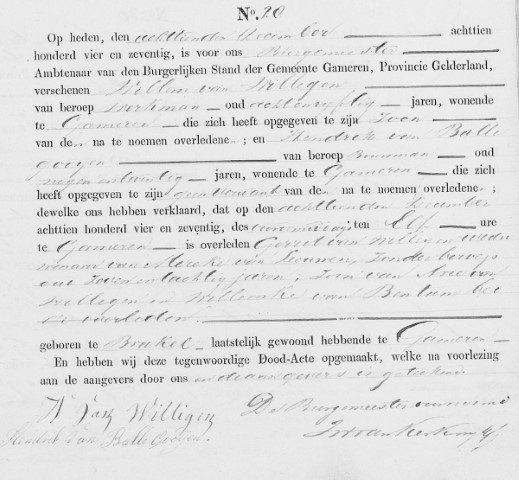 No. 20
Op heden, den achttienden December achttien
honderd vier en zeventig, is voor ons Burgemeester
Ambtenaar van den Burgerlijken Stand der Gemeente Gameren, Provincie Gelderland,
verschenen Willem van Willegen
van beroep werkman oud achtenvijftig jaren, wonende
te Gameren die zich heeft opgegeven te zijn Zoon
van den na te noemen overledene ; en Hendrik van Balle
gooyen van beroep Bouwman oud
negen en twintig jaren, wonende te Gameren die zich
heeft opgegeven te zijn geen verwant van den na te noemen overledene ;
dewelke ons hebben verklaard, dat op den achttienden December
achttien honderd vier en zeventig, des voormiddags ten Elf ure
te Gameren is overleden Gerrit van Willegen wedu
wenaar van Merike van Leeuwen, Zonder beroep
oud Zeven en tachtig jaren, Zoon van Arie van
Willegen en Willemke van Bentum bei
de overleden
geboren te Brakel laatstelijk gewoond hebbende te Gameren
En hebben wij deze tegenwoordige Dood-Acte opgemaakt, welke na voorlezing
aan de aangevers door ons en de aangevers is geteekend
W van Willigen De Burgemeester voornoemd
Hendrik van Balle Gooyen.